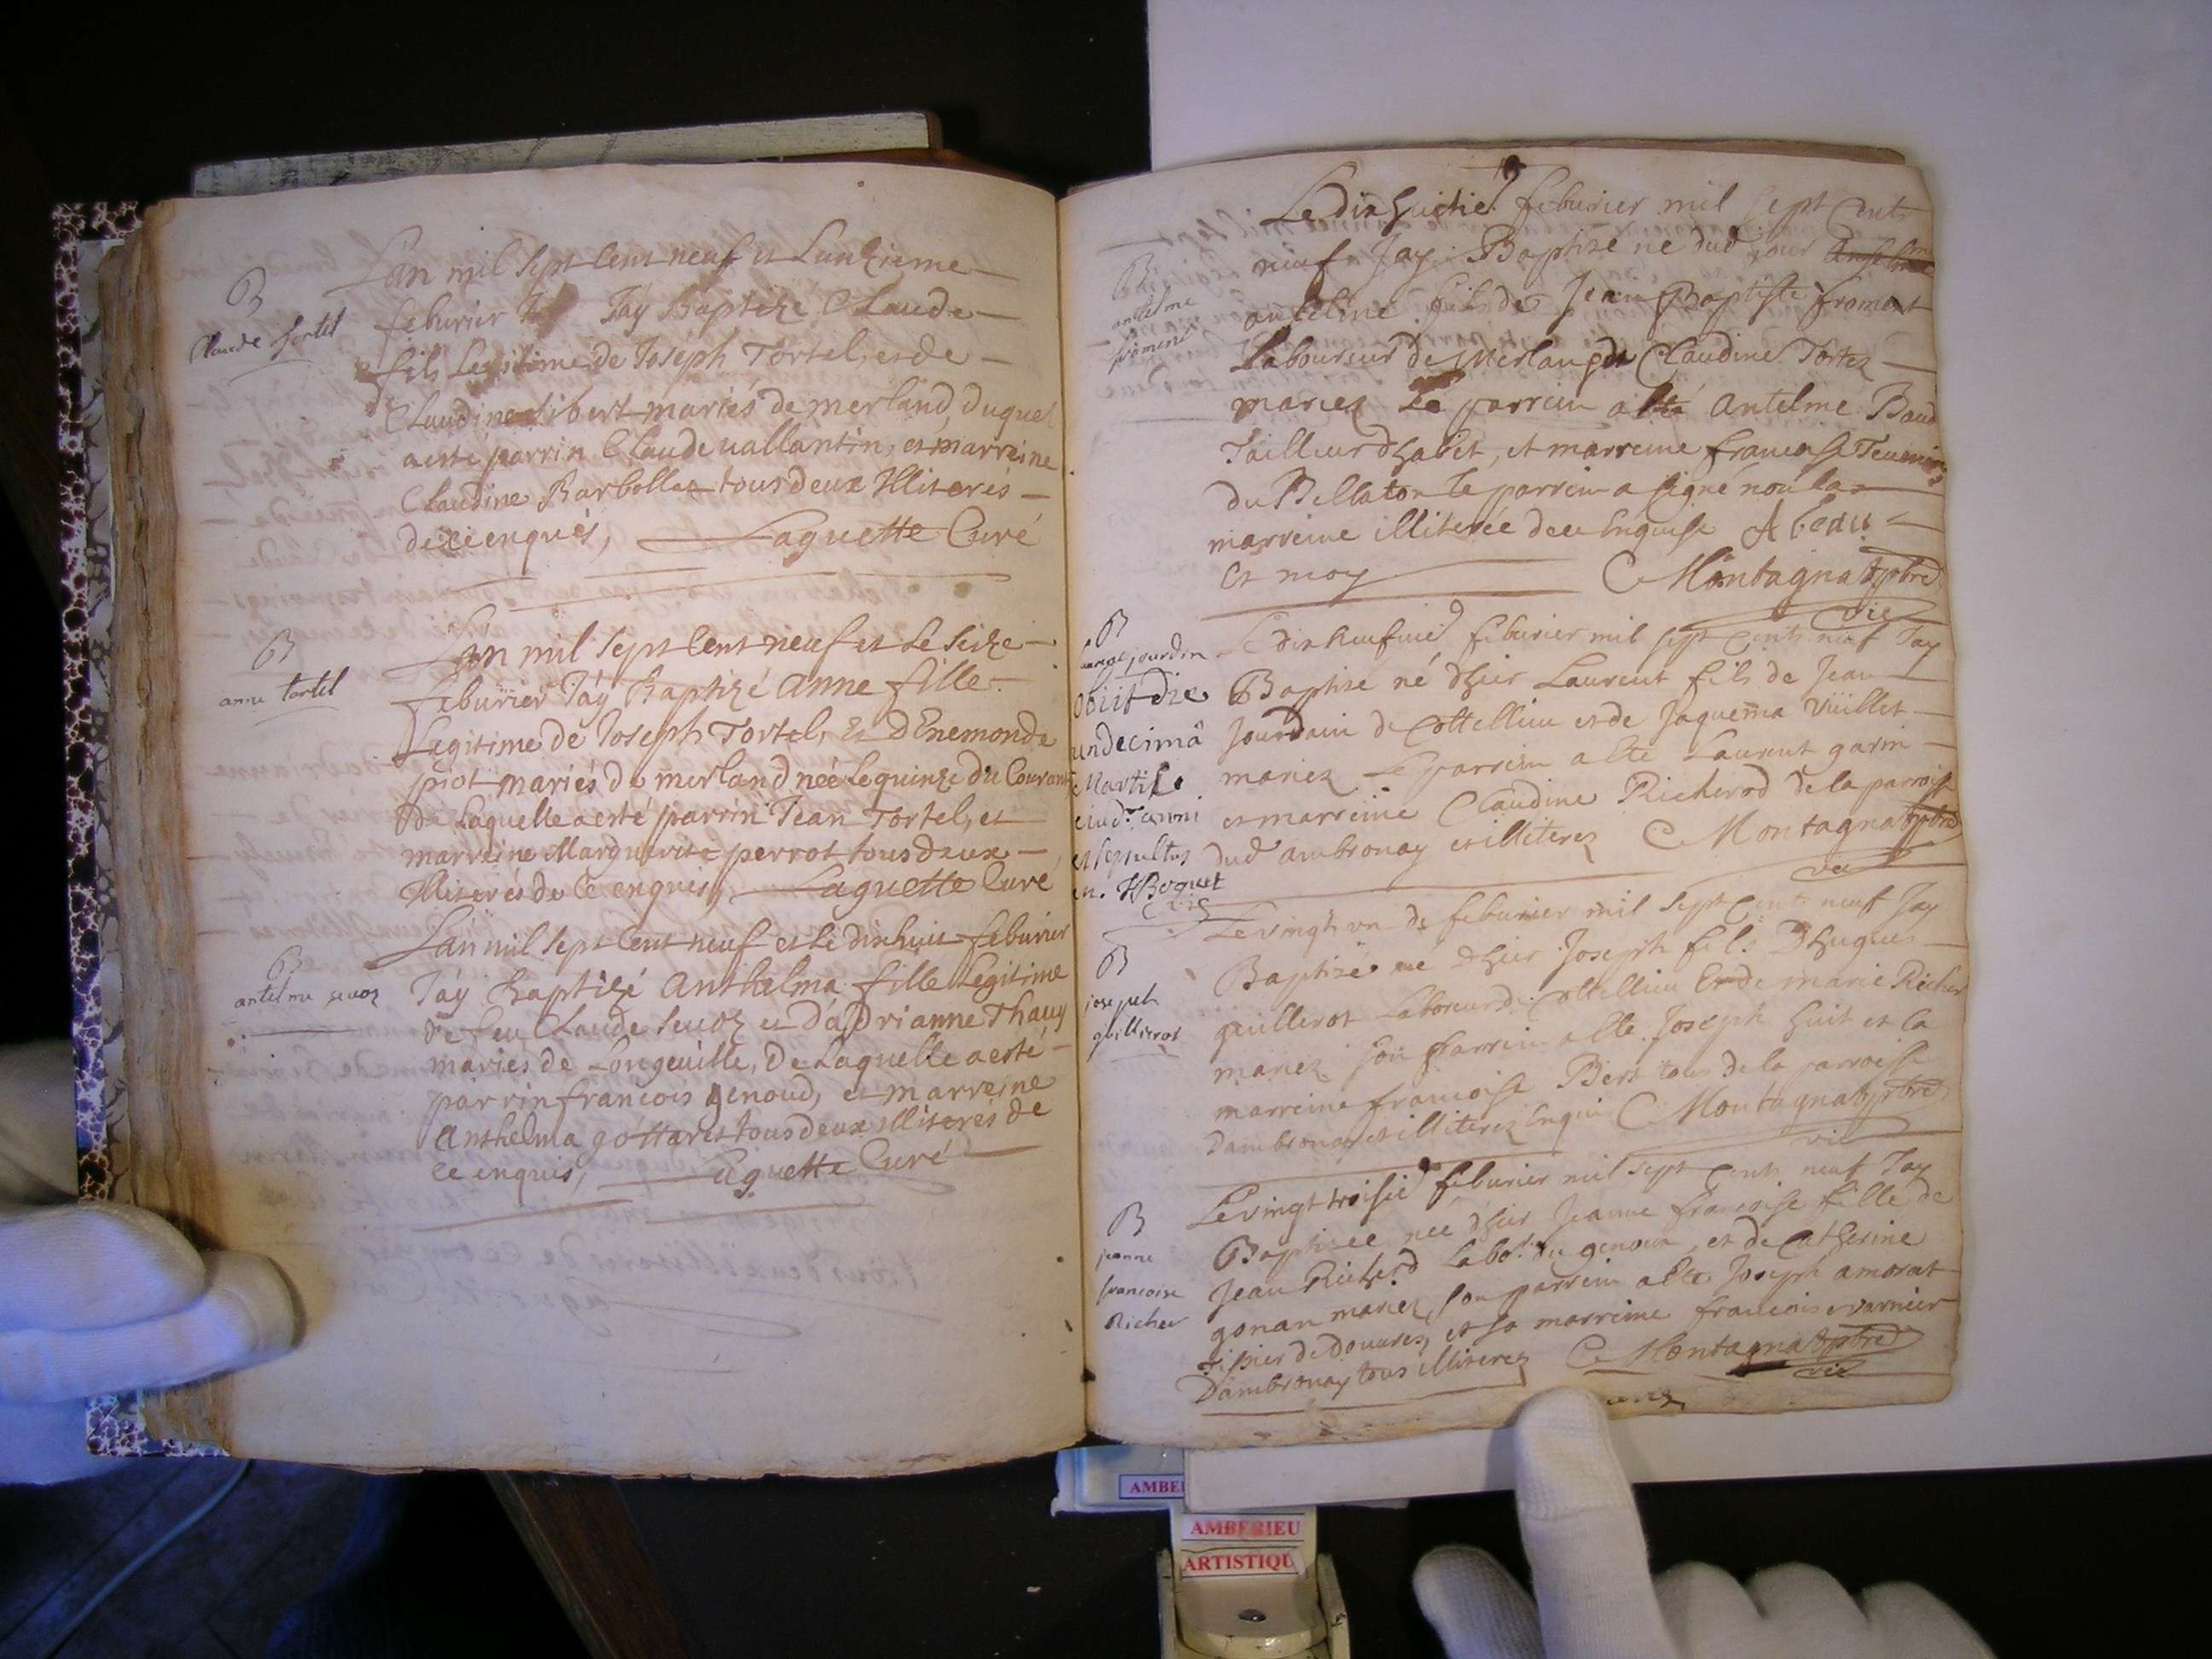 B
Claude tortel
Lan mil sept Cent neuf et Lunzieme
feburier Jáy Baptize Claude
fils Legitime de Joseph Tortel, et de
Claudine libert mariés de merland, duquel
a esté parrin Claude vallantin, et marreine
Claudine Barbollat tous deux Illiterés
de ce enqués, Laguette Curé
B
anne tortel
Lan mil sept Cent neuf et le seize
feburier Jáy Baptizé Anne fille
Legitime de Joseph Tortel, et DEnemonde
piot mariés de merland née le quinze du Courant
de Laquelle a esté parrin Jean Tortel, et
marreine Marguerite perrot tous deux
Illiterés de Ce enquis, Laguette Curé
B
antelme sevoz
Lan mil sept Cent neuf et le dixhuit feburier
Jáy baptizé Anthelma fille Legitime
de feu Claude Sevoz et dadrianne Thauy
maries de Longeuille, de Laquelle a esté
parrin francois genoud, et marreine
Anthelma gottaret tous deux illiterés de
ce enquis, Laguette Curé
Le dix huictie feburier mil sept Cents
neuf Jay Baptise ne dud jour
B
antelme
froment
antelme fils de Jean Baptiste froment
Laboureur de Merland et Claudine Tortez
mariez Le parrein a esté Antelme Baud
Tailleur dhabit, et marreine francoise
du Bellaton le parrein a signé non la
marreine illiterée de ce Enquise A beau
et moy C Montagnat ptre
vic
B
laurent jourdin
obiit die
undecimâ
Martii
eiusd. anni
et sepultus
in. H Boquet
Le dix neufuie feburier mil sept Cents neuf Jay
Baptisé né dhier Laurent fils de Jean
Jourdain de Cottellieu et de Jaquema Vuillet
mariez Le parrein a esté Laurent garin
et marreine Claudine Richerod de la parroisse
dud ambronay et illiterez C Montagnat ptre
vic
B
joseph
guillerot
Le vingt un de feburier mil sept Cents neuf Jay
Baptizé né dhier Joseph fils Dhugues
guillerot Laboreur de Cottellieu Et de marie Richer
mariez son parrein a esté Joseph huit et la
marreine francoise Bert tous de la parroisse
Dambronay et illiterez Enquis C Montagnat ptre
vic
B
jeanne
francoise
Richer
Le vingt troisie feburier mil sept Cents neuf Jay
Baptisee née dhier Jeanne francoise fille de
Jean Richerd Labor. du genoux, et de Catherine
gonan mariez, son parrein a esté Joseph amorat
Tissier de Douures, et sa marreine francoise varnier
Dambronay tous illiterez C Montagnat ptre
vic
AMBE
AMBERIEU
ARTISTIQU